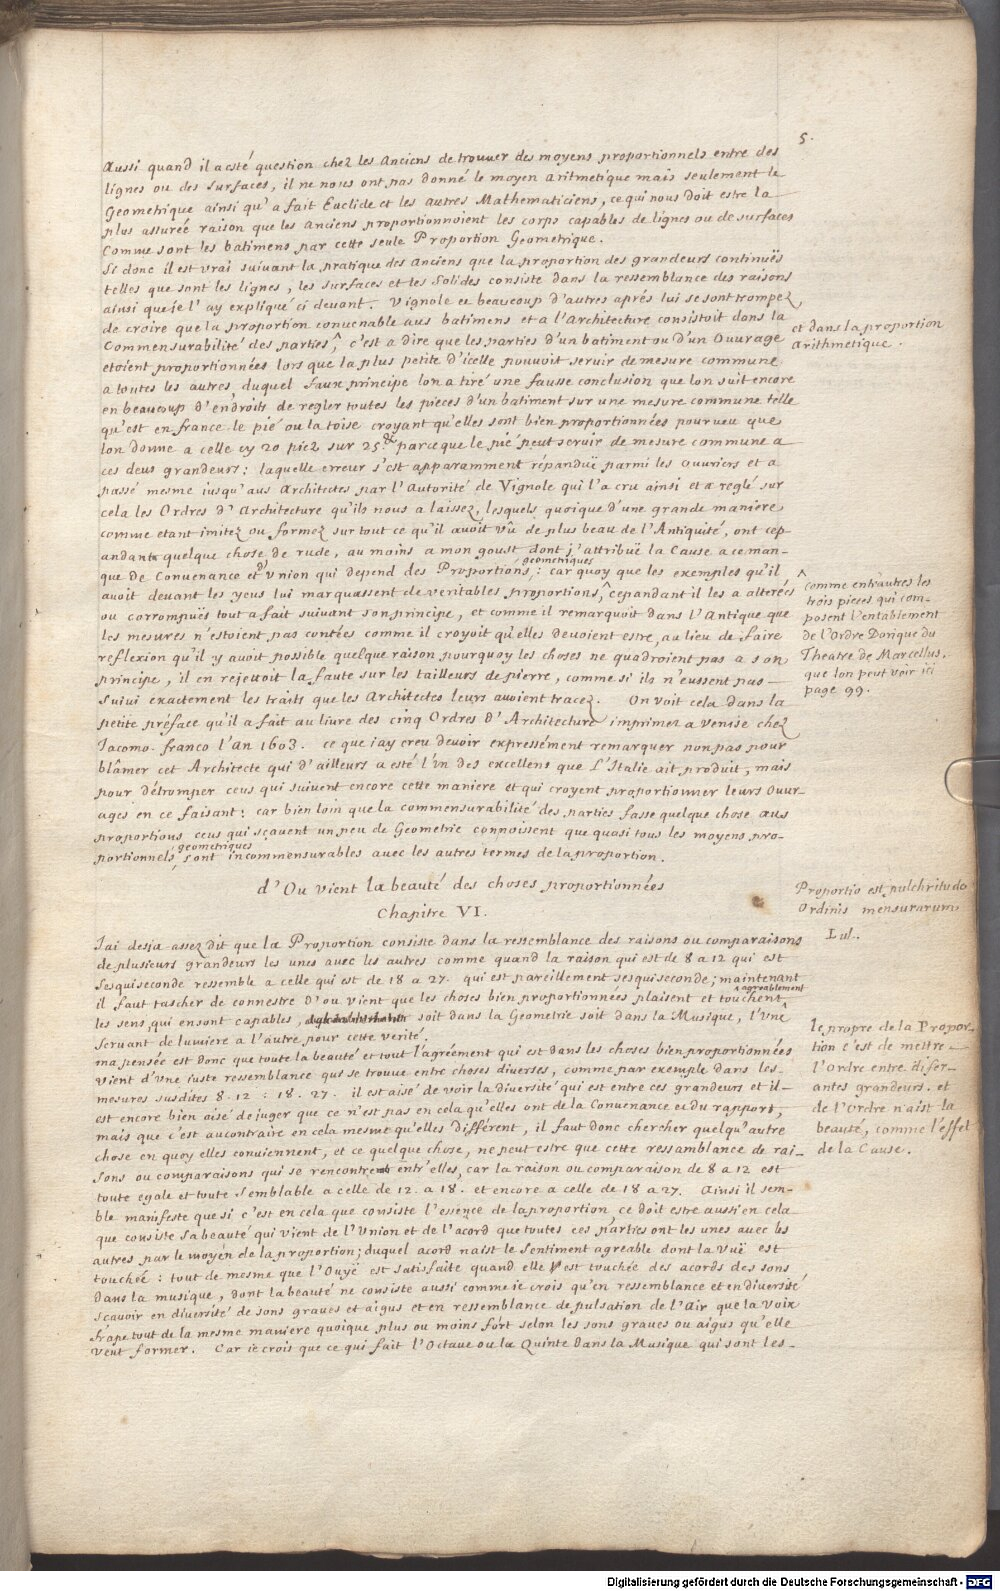 5.
Aussi quand il a esté question chez les Anciens de trouver des moyens proportionnels entre des
lignes ou des surfaces, il ne nous ont pas donné le moyen aritmetique mais seulement le
Geometrique ainsi qu'a fait Euclide et les autres Mathematiciens, ce qui nous doit estre la
plus assurée raison que les Anciens proportionnoient les corps capables de lignes ou de surfaces
Comme sont les batimens par cette seule Proportion Geometrique.
Si donc il est vrai suivant la pratique des Anciens que la proportion des grandeurs continuës
telles que sont les lignes, les surfaces et les Solides consiste dans la ressemblance des raisons
ainsi que je l'ay expliqué ci devant. Vignole et beaucoup d'autres aprés lui se sont trompez
de croire que la proportion convenable aus batimens et a l'Architecture consistoit dans la
Commensurabilité des parties^, c'est a dire que les parties d'un batiment ou d'un Ouvrage
etoient proportionnées lors que la plus petite d'icelle pouvoit servir de mesure commune
a toutes les autres, duquel faux principe lon a tiré une fausse conclusion que lon suit encore
en beaucoup d'endroits de regler toutes les pieces d'un batiment sur une mesure commune telle
qu'est en france le pié ou la toise croyant qu'elles sont bien proportionnées pourveu que
lon donne a celle cy 20 piez sur 25. &c parce que le pié peut servir de mesure commune a
ces deus grandeurs: laquelle erreur s'est apparamment répanduë parmi les Ouvriers et a
passé mesme jusqu'aus Architectes par l'Autorité de Vignole qui l'a cru ainsi et a reglé sur
cela les Ordres d'Architecture qu'ils nous a laissez, lesquels quoique d'une grande maniere
comme etant imitez ou formez sur tout ce qu'il avoit vû de plus beau de l'Antiquité, ont cep
andant quelque chose de rude, au moins a mon goust dont j'attribuë la Cause a ce man-
que de Convenance et d'Union qui depend des Proportions geometriques: car quoy que les exemples qu'il
avoit devant les yeus lui marquassent de veritables proportions^, cepandant il les a alterées
ou corrompuës tout a fait suivant son principe, et comme il remarquoit dans l'Antique que
les mesures n'estoient pas contées comme il croyoit qu'elles devoient estre, au lieu de faire
reflexion qu'il y avoit possible quelque raison pourquoy les choses ne quadroient pas a son
principe, il en rejettoit la faute sur les tailleurs de pierre, comme si ils n'eussent pas
suivi exactement les traits que les Architectes leurs avoient tracez. On voit cela dans la
petite préface qu'il a fait au livre des cinq Ordres d'Architecture imprimez a Venise chez
Jacomo franco l'An 1603. ce que j'ay creu devoir expressément remarquer non pas pour
blâmer cet Architecte qui d'ailleurs a esté l'Un des excellens que L'Italie ait produit, mais
pour détromper ceus qui suivent encore cette maniere et qui croyent proportionner leurs Ouvr-
ages en ce faisant: car bien loin que la commensurabilité des parties fasse quelque chose aus
proportions ceus qui sçavent un peu de Geometrie connoissent que quasi tous les moyens pro-
portionnels geometriques sont incommensurables avec les autres termes de la proportion.
et dans la proportion
Arithmetique.
^ Comme entr'autres les
trois pieces qui com-
posent l'entablement
de l'Ordre Dorique du
Theatre de Marcellus.
que lon peut voir ici
page 99.
d'Ou vient la beauté des choses proportionnées
Chapitre VI.
Proportio est pulchritudo
Ordinis mensurarum
Lul.
J'ai desja assez dit que la Proportion consiste dans la ressemblance des raisons ou comparaisons
de plusieurs grandeurs les unes avec les autres comme quand la raison qui est de 8 a 12 qui est
sesquiseconde ressemble a celle qui est de 18 a 27. qui est pareillement sesquiseconde; maintenant
il faut tascher de connestre d'ou vient que les choses bien proportionnées plaisent et touchent ^agreablement
les sens qui en sont capables, soit dans la Geometrie soit dans la Musique, l'Une
servant de lumiere a l'autre pour cette verité.
ma pensée est donc que toute la beauté et tout l'agréement qui est dans les choses bien proportionnées
vient d'Une juste ressemblance qui se trouve entre choses diverses, comme par exemple dans les
mesures susdites 8. 12 : 18. 27. il est aisé de voir la diversité qui est entre ces grandeurs et il
est encore bien aisé de juger que ce n'est pas en cela qu'elles ont de la Convenance et du rapport,
mais que c'est au contraire en cela mesme qu'elles différent, il faut donc chercher quelqu'autre
chose en quoy elles conviennent, et ce quelque chose, ne peut estre que cette ressamblance de rai-
sons ou comparaisons qui se rencontrent entr'elles, car la raison ou comparaison de 8 a 12 est
toute egale et toute semblable a celle de 12. a 18. et encore a celle de 18 a 27. Ainsi il sem-
ble manifeste que si c'est en cela que consiste l'essence de la proportion ce doit estre aussi en cela
que consiste sa beauté qui vient de l'Union et de l'acord que toutes ces parties ont les unes avec les
autres par le moyén de la proportion; duquel acord naist le sentiment agreable dont la Vuë est
touchée: tout de mesme que l'Ouyë est satisfaite quand elle est touchée des acords des sons
dans la musique, dont la beauté ne consiste aussi comme je crois qu'en ressemblance et en diversité
scavoir en diversité de sons graves et aigus et en ressemblance de pulsation de l'Air que la Voix
frape tout de la mesme maniere quoique plus ou moins fort selon les sons graves ou aigus qu'elle
veut former. Car je crois que ce qui fait l'Octave ou la Quinte dans la Musique qui sont les
le propre de la Propor-
tion c'est de mettre
l'Ordre entre difer-
antes grandeurs. et
de l'Ordre naist la
beauté, comme l'effet
de la Cause.
Digitalisierung gefördert durch die Deutsche Forschungsgemeinschaft - DFG